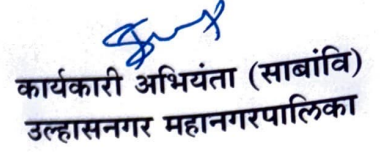 कार्यकारी अभियंता (साबांवि)
उल्हासनगर महानगरपालिका